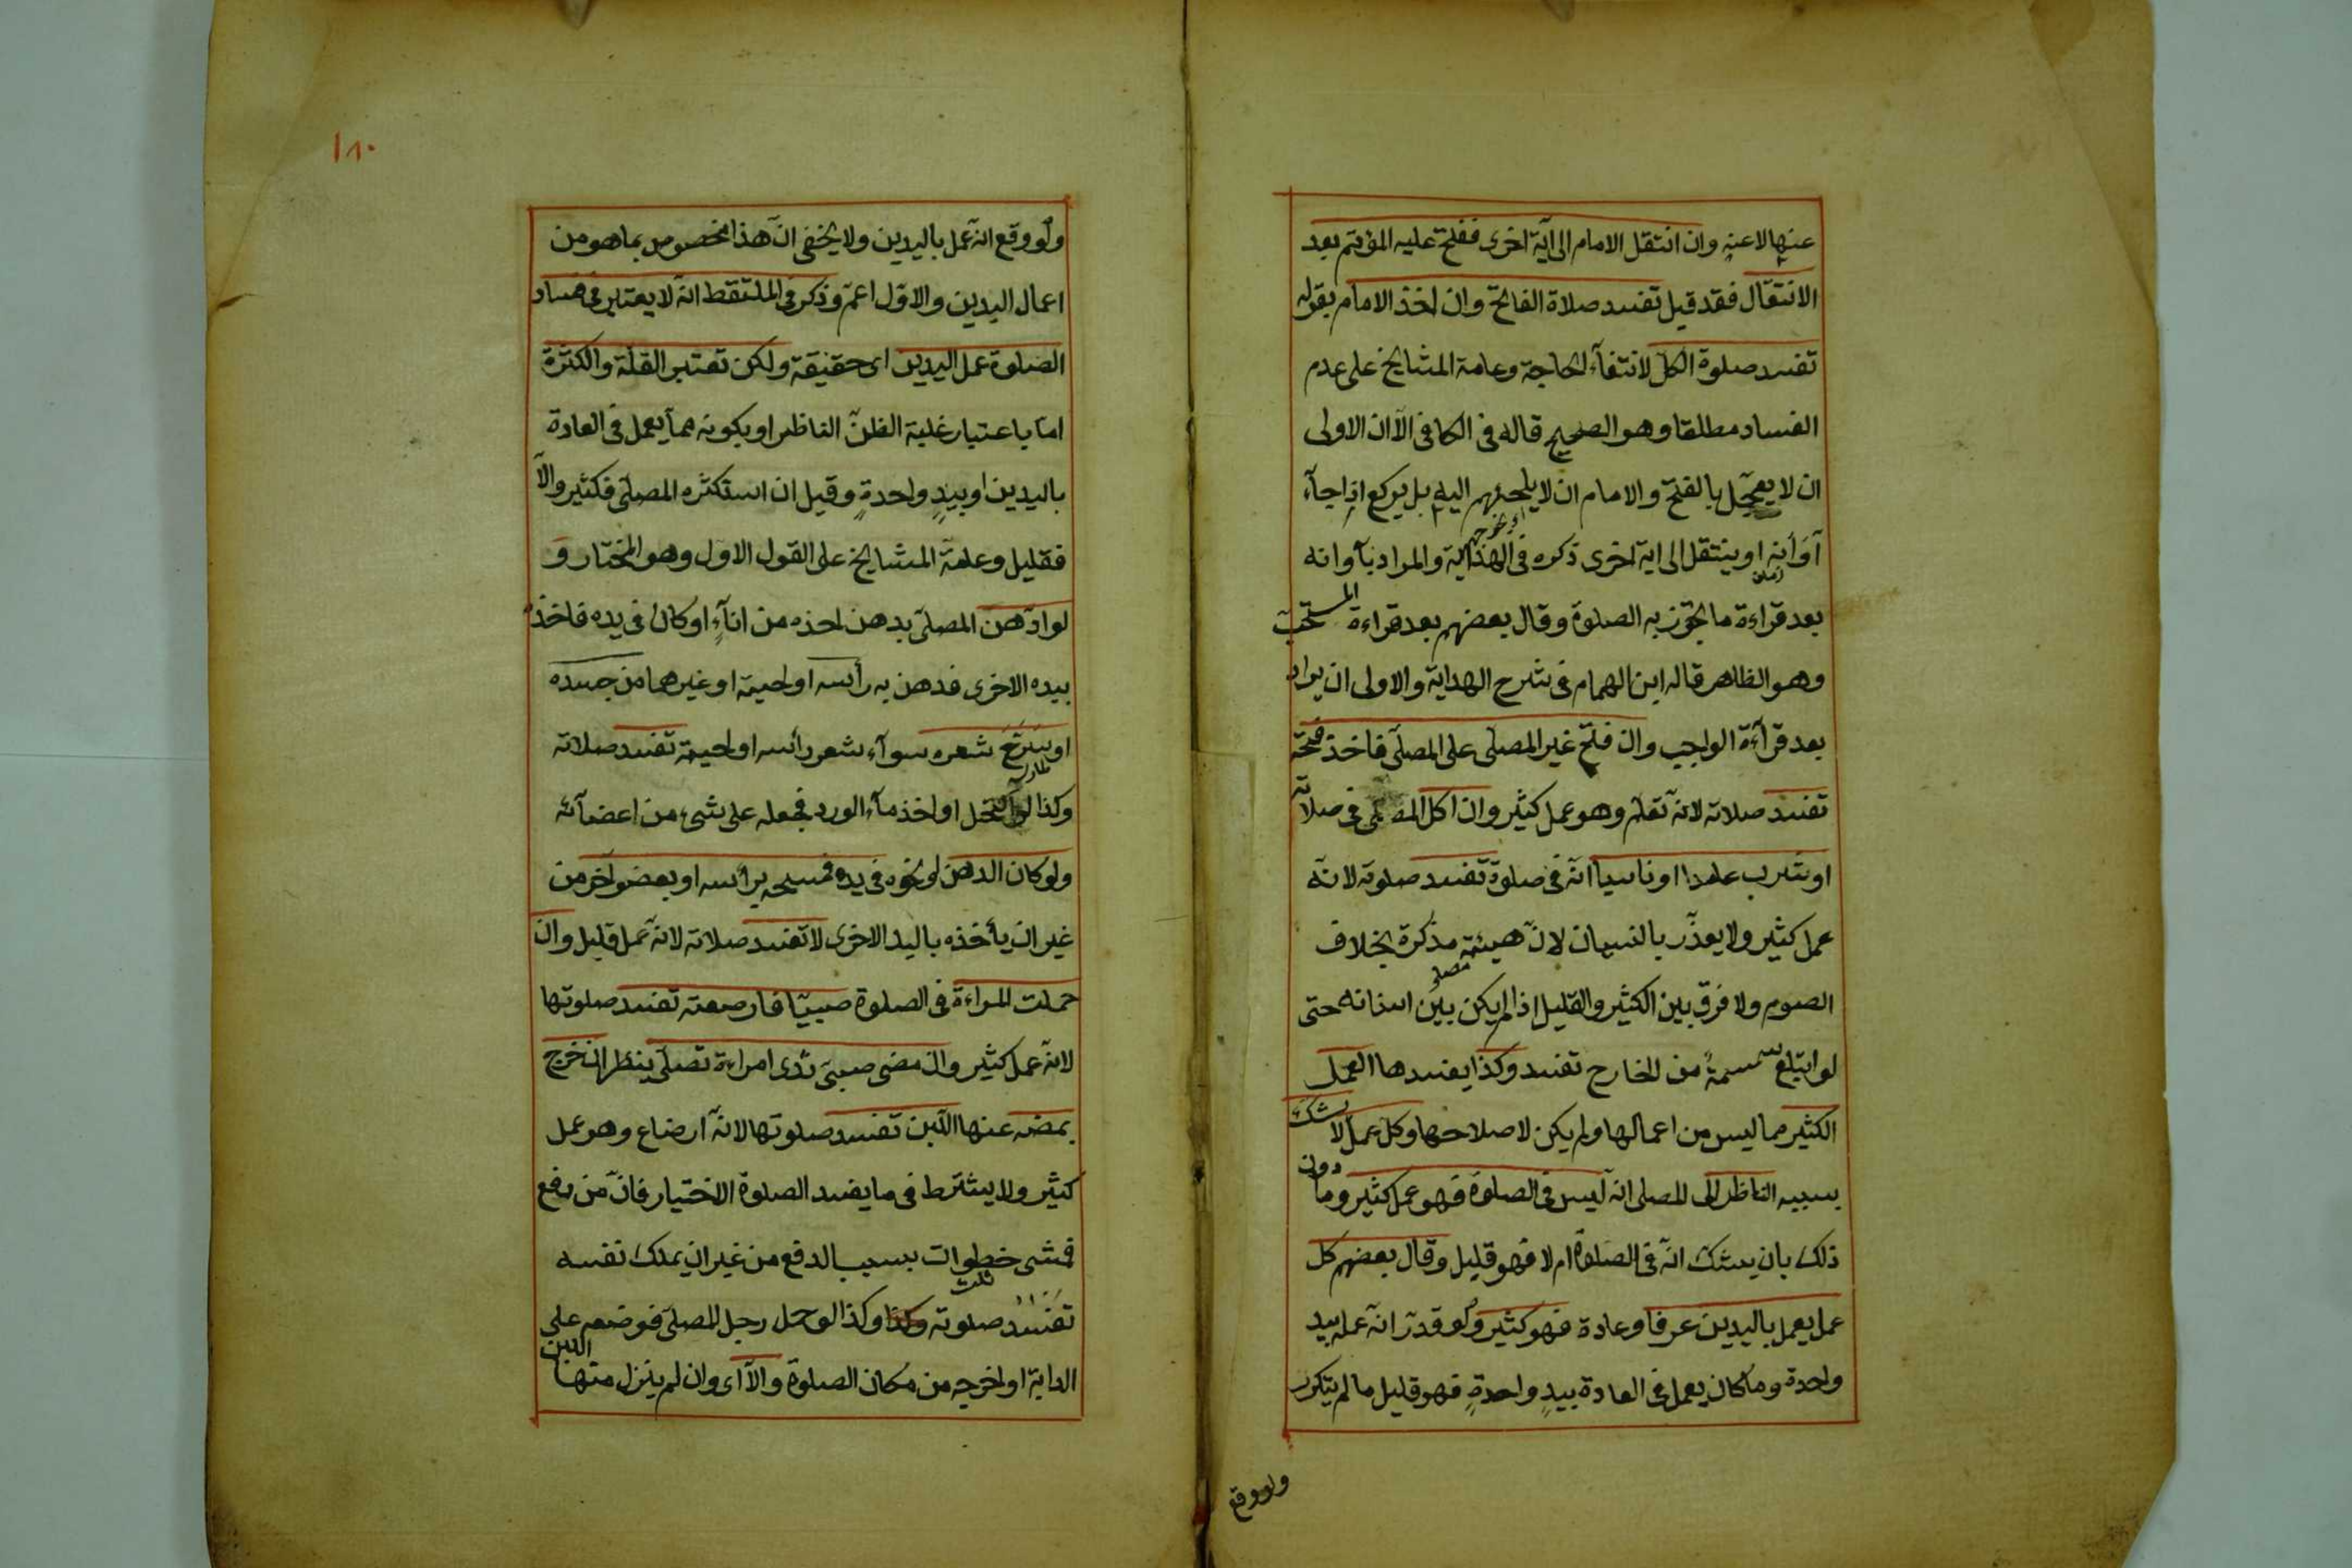 عنها لا عنه وان انتقل الامام الى آية اخرى ففتح عليه المؤتم بعد
الانتقال فقد قيل تفسد صلاة الفاتح وان اخذ الامام بقوله
تفسد صلوة الكل لانتفآء الحاجة وعامة المشايخ على عدم
الفساد مطلقا وهو الصحيح قاله فى الكافى الآ ان الاولى
ان لا يعجّل بالفتح والامام ان لا يلجئهم اليه بل يركع اذا جآء
آوانه او ينتقل الى اية اخرى ذكره فى الهداية والمراد بآوانه
بعد قراءة ما يجوز به الصلوة وقال بعضهم بعد قراءة المستحبّ
وهو الظاهر قاله ابن الهمام فى شرح الهداية والاولى ان يراد
بعد قرآءة الواجب وان فتح غير المصلى على المصلّى فاخذ بفتحه
تفسد صلاته لانه تعلّم وهو عمل كثير وان اكل المصلى فى صلاته
او شرب عامدا او ناسيا انّه فى صلوة تفسد صلوته لانّه
عمل كثير ولا يعذّر بالنسيان لانّ هيئته مذكرة بخلاف
الصوم ولا فرق بين الكثير والقليل اذا لم يكن بين اسنانه حتى
لو ابتلع سمسمةً من الخارج تفسد وكذا يفسدها العمل
الكثير مما ليس من اعمالها ولم يكن لاصلاحها وكل عمل لا يشكّ
بسببه الناظر الى المصلى انّه ليس فى الصلوة فهو عمل كثير وما دون
ذلك بان يشك انّه فى الصلوة ام لا فهو قليل وقال بعضهم كل
عمل يعمل باليدين عرفا وعادة فهو كثير ولو قدّر انّه عمله بيد
واحدة وما كان يعمل فى العادة بيدٍ واحدةٍ فهو قليل ما لم يتكرر
ولو وقع
١٨٠
ولو وقع انّه عمل باليدين ولا يخفى انّ هذا مخصوص بما هو من
اعمال اليدين والاوّل اعمّ وذكر فى الملتقط انّه لا يعتبر فى فساد
الصلوة عمل اليدين اى حقيقة ولكن تعتبر القلّة والكثرة
امّا باعتبار غلبة الظنّ الناظر او بكونه ممّا يعمل فى العادة
باليدين او بيدٍ واحدةٍ وقيل ان استكثره المصلّى فكثير والاّ
فقليل وعامّة المشايخ على القول الاول وهو المختار و
لو ادّهن المصلّى بدهن اخذه من انآءٍ او كان فى يده فاخذه
بيده الاخرى فدهن به رأسه او لحيته او غيرهما من جسده
او سرّح شعره سوآء شعر رأسه او لحيته تفسد صلاته
وكذا لو اكتحل او اخذ مآء الورد فجعله على شىء من اعضآئه
ولو كان الدهن او نحوه فى يده فمسحه برأسه او بعضو آخر من
غير ان يأخذه باليد الاخرى لا تفسد صلاته لانّه عمل قليل وان
حملت المراءة فى الصلوة صبيّا فارضعته تفسد صلوتها
لانّه عمل كثير وان مصّ صبىّ ثدى امراءة تصلّى ينظر ان خرج
بمصّه عنها اللّبن تفسد صلوتها لانّه ارضاع وهو عمل
كثير ولا يشترط فى ما يفسد الصلوة الاختيار فانّ من دفع
فمشى خطوات بسبب الدفع من غير ان يملك نفسه
ثلث
تفسد صلوته وكذا لو حمل رجل المصلّى فوضعه على
الدابة او اخرجه من مكان الصلوة والاّ اى وان لم ينزل منها اللبن